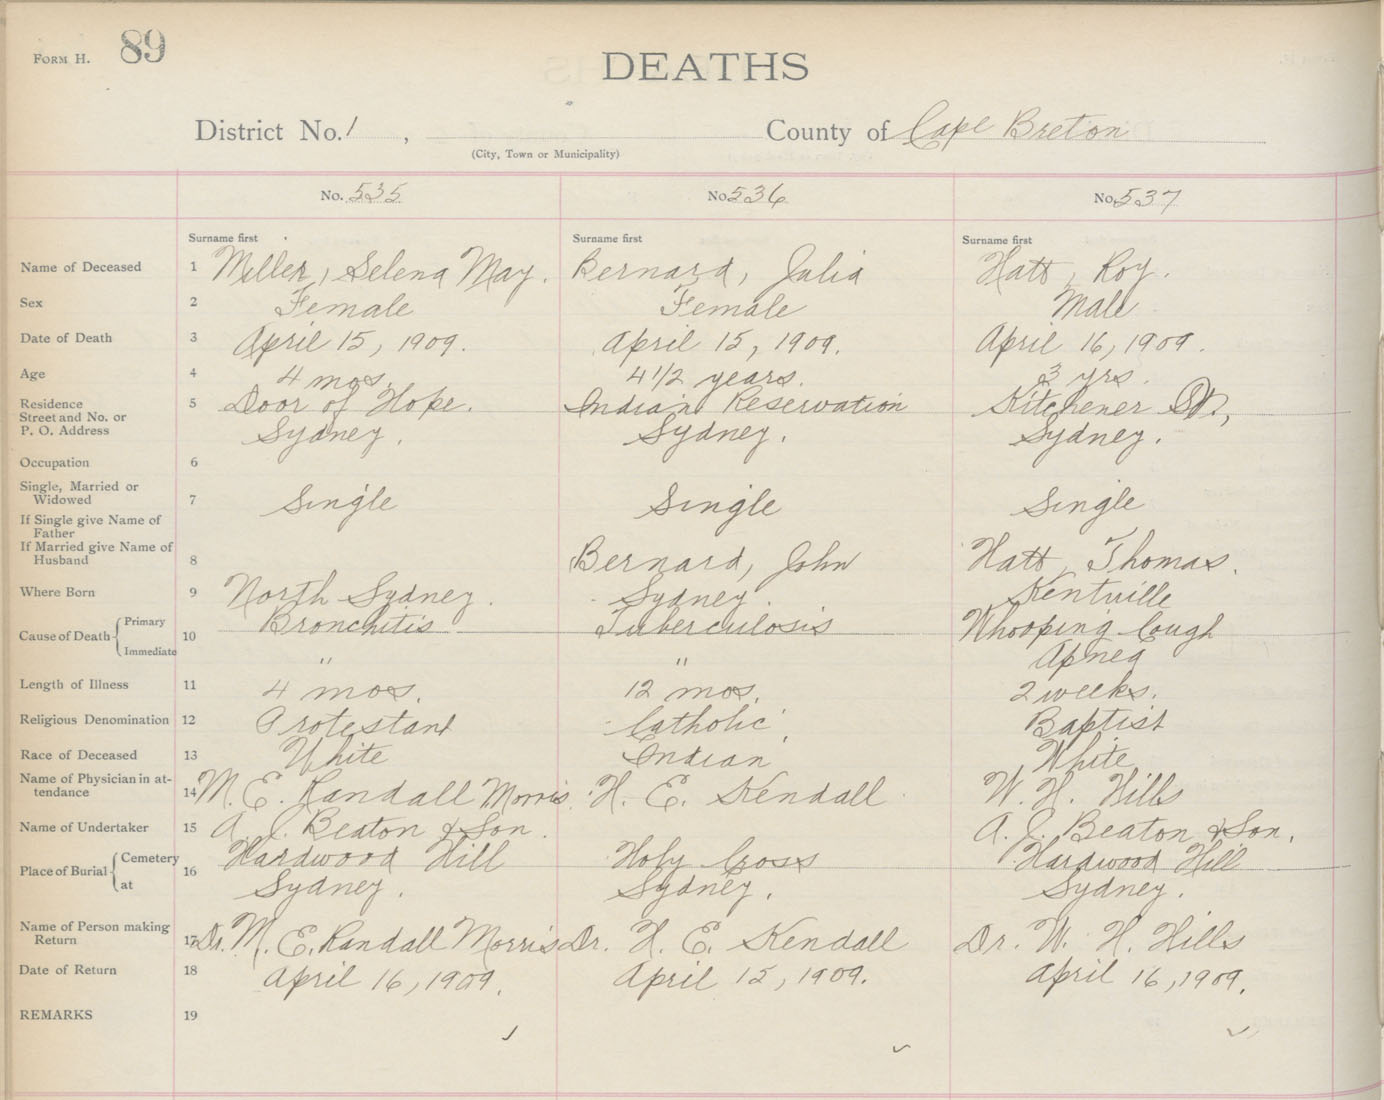 FORM H. 89
DEATHS
District No. 1 , County of Cape Breton
(City, Town or Municipality)
No. 535 No. 536 No. 537
Surname first Surname first Surname first
Name of Deceased 1 Miller, Selena May. Bernard, Julia Hatt, Roy.
Sex 2 Female Female Male
Date of Death 3 April 15, 1909. April 15, 1909. April 16, 1909.
Age 4 4 mos. 4 1/2 years. 3 yrs.
Residence 5 Door of Hope. Indian Reservation Kitchener St.,
Street and No. or
P. O. Address Sydney. Sydney. Sydney.
Occupation 6
Single, Married or
Widowed 7 Single Single Single
If Single give Name of
Father
If Married give Name of
Husband 8 Bernard, John Hatt, Thomas.
Where Born 9 North Sydney. Sydney. Kentville
Cause of Death Primary 10 Bronchitis Tuberculosis Whooping Cough
Immediate " " Apnea
Length of Illness 11 4 mos. 12 mos. 2 weeks.
Religious Denomination 12 Protestant Catholic Baptist
Race of Deceased 13 White Indian White
Name of Physician in at-
tendance 14 M. E. Randall Morris. H. E. Kendall W. H. Hills
Name of Undertaker 15 A. J. Beaton & Son. A. J. Beaton & Son.
Place of Burial Cemetery 16 Hardwood Hill Holy Cross Hardwood Hill
at Sydney. Sydney. Sydney.
Name of Person making
Return 17 Dr. M. E. Randall Morris Dr. H. E. Kendall Dr. W. H. Hills
Date of Return 18 April 16, 1909. April 15, 1909. April 16, 1909.
REMARKS 19